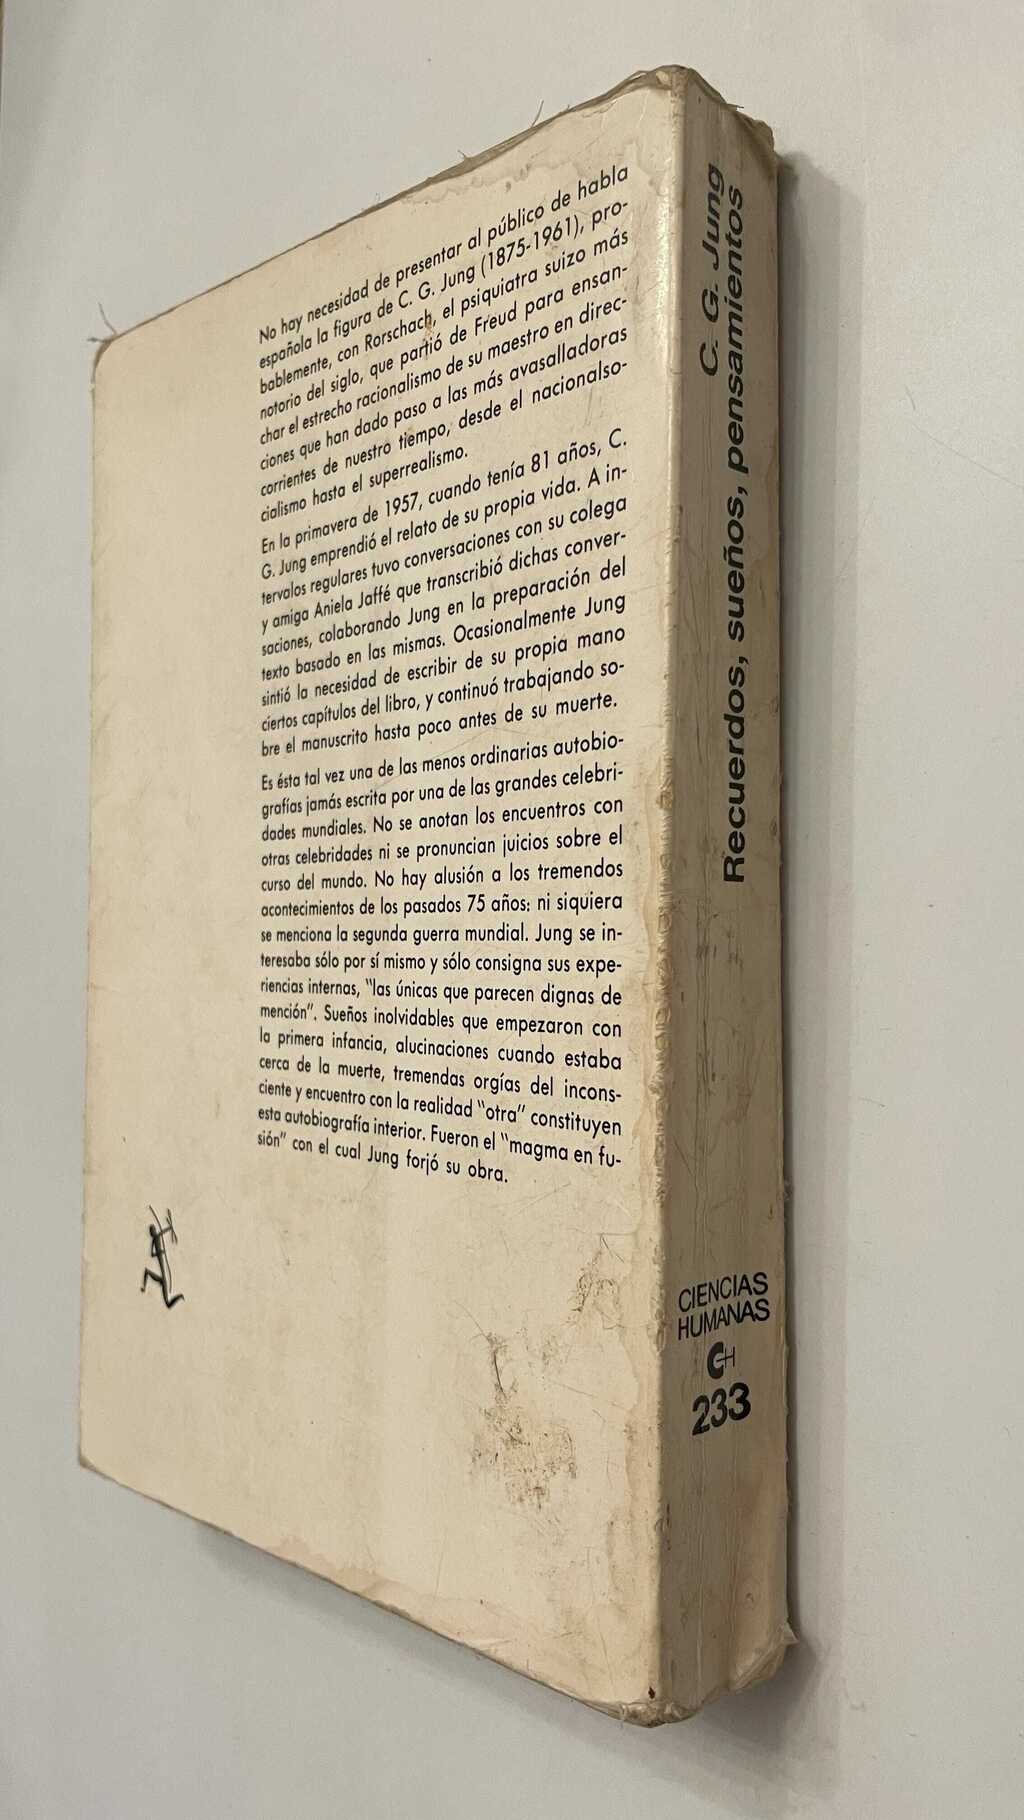 No hay necesidad de presentar al público de habla
española la figura de C. G. Jung (1875-1961), pro-
bablemente, con Rorschach, el psiquiatra suizo más
notorio del siglo, que partió de Freud para ensan-
char el estrecho racionalismo de su maestro en direc-
ciones que han dado paso a las más avasalladoras
corrientes de nuestro tiempo, desde el nacionalso-
cialismo hasta el superrealismo.
En la primavera de 1957, cuando tenía 81 años, C.
G. Jung emprendió el relato de su propia vida. A in-
tervalos regulares tuvo conversaciones con su colega
y amiga Aniela Jaffé que transcribió dichas conver-
saciones, colaborando Jung en la preparación del
texto basado en las mismas. Ocasionalmente Jung
sintió la necesidad de escribir de su propia mano
ciertos capítulos del libro, y continuó trabajando so-
bre el manuscrito hasta poco antes de su muerte.
Es ésta tal vez una de las menos ordinarias autobio-
grafías jamás escrita por una de las grandes celebri-
dades mundiales. No se anotan los encuentros con
otras celebridades ni se pronuncian juicios sobre el
curso del mundo. No hay alusión a los tremendos
acontecimientos de los pasados 75 años: ni siquiera
se menciona la segunda guerra mundial. Jung se in-
teresaba sólo por sí mismo y sólo consigna sus expe-
riencias internas, "las únicas que parecen dignas de
mención". Sueños inolvidables que empezaron con
la primera infancia, alucinaciones cuando estaba
cerca de la muerte, tremendas orgías del incons-
ciente y encuentro con la realidad "otra" constituyen
esta autobiografía interior. Fueron el "magma en fu-
sión" con el cual Jung forjó su obra.
C. G. Jung
Recuerdos, sueños, pensamientos
CIENCIAS
HUMANAS
CH
233